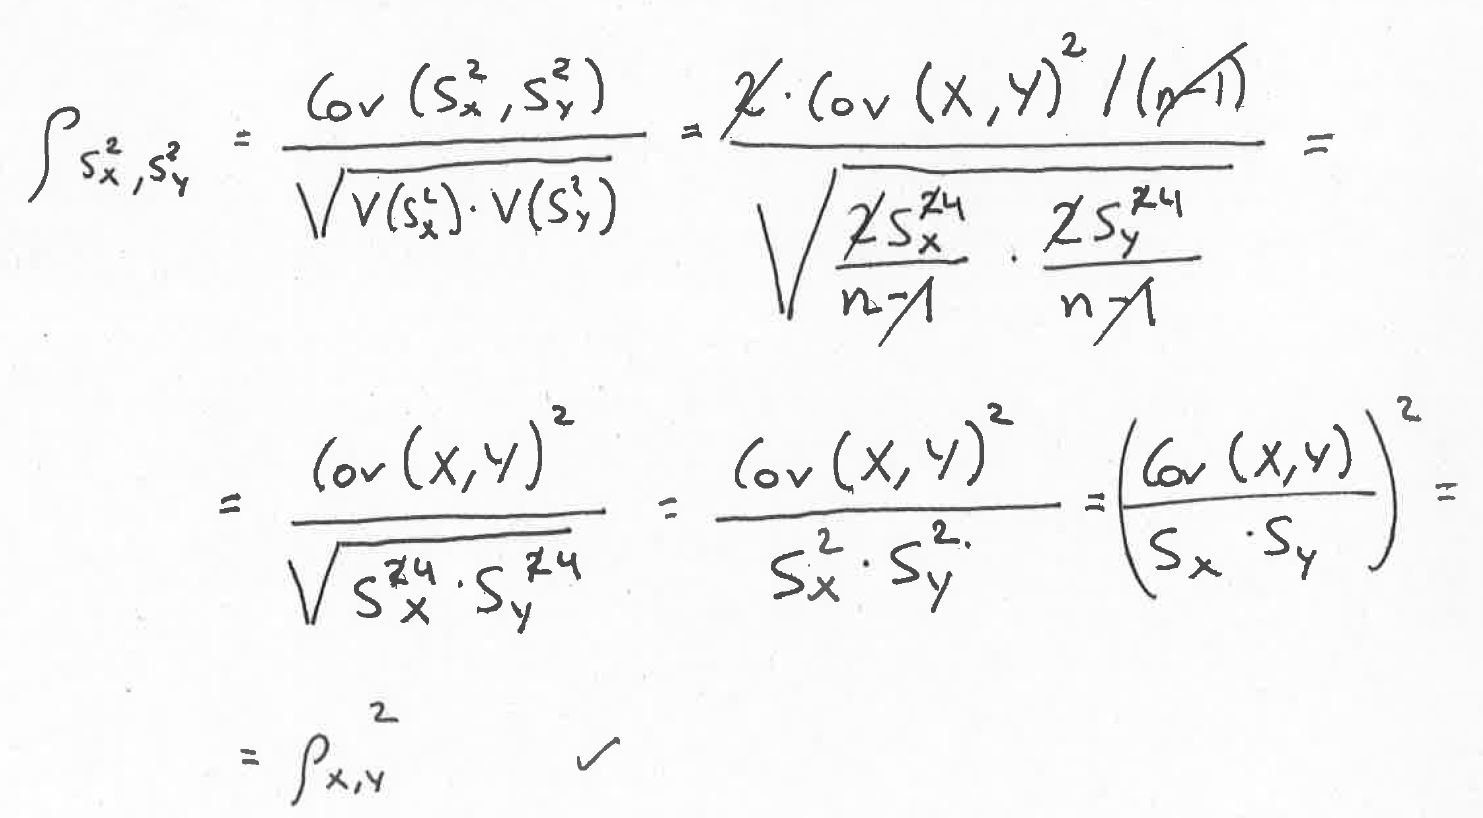 ρ_{S_x^2, S_y^2} = Cov(S_x^2, S_y^2) / √(V(S_x^2) · V(S_y^2)) = 2 · Cov(X, Y)^2 / (n-1) / √(2S_x^4 / (n-1) · 2S_y^4 / (n-1)) =
= Cov(X, Y)^2 / √(S_x^4 · S_y^4) = Cov(X, Y)^2 / (S_x^2 · S_y^2) = (Cov(X, Y) / (S_x · S_y))^2 =
= ρ_{X,Y}^2 ✓